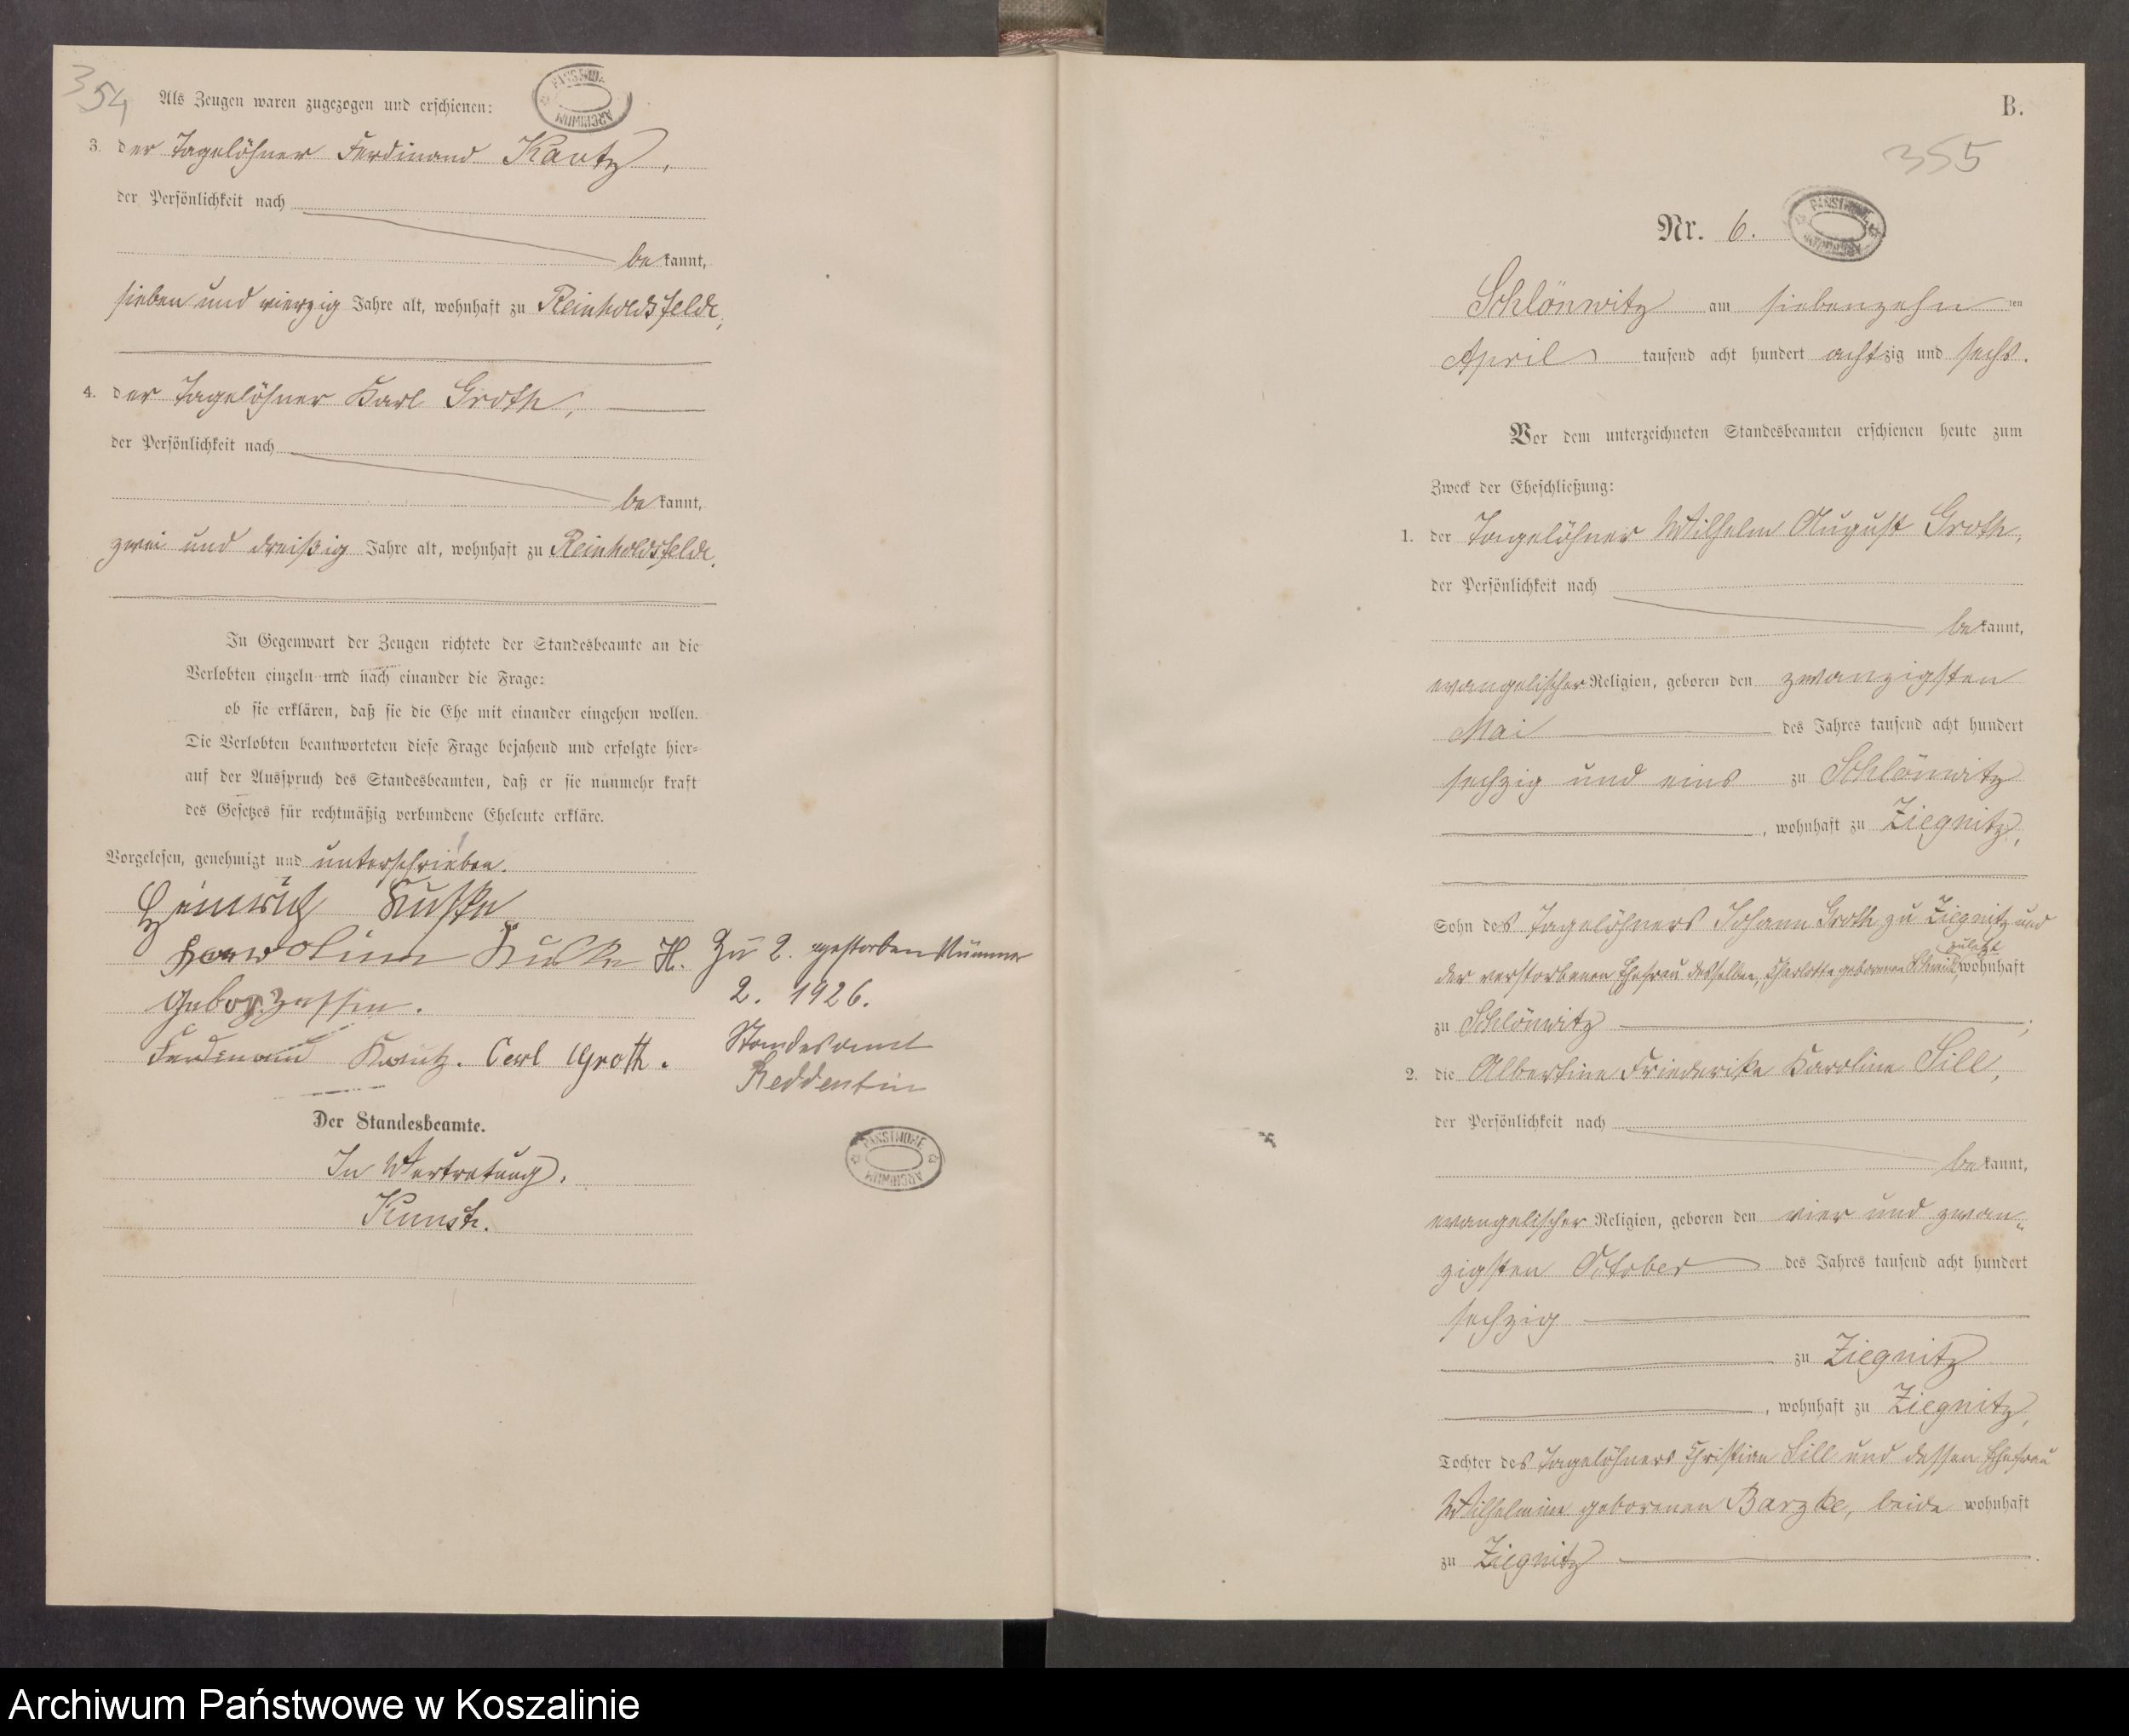 354
Als Zeugen waren zugezogen und erschienen:
PAŃSTWOWE ARCHIWUM
3. der Tagelöhner Ferdinand Kautz,
der Persönlichkeit nach
bekannt,
sieben und vierzig Jahre alt, wohnhaft zu Reinholdsfelde;
4. der Tagelöhner Karl Groth,
der Persönlichkeit nach
bekannt,
zwei und dreißig Jahre alt, wohnhaft zu Reinholdsfelde.
In Gegenwart der Zeugen richtete der Standesbeamte an die
Verlobten einzeln und nach einander die Frage:
ob sie erklären, daß sie die Ehe mit einander eingehen wollen.
Die Verlobten beantworteten diese Frage bejahend und erfolgte hier-
auf der Ausspruch des Standesbeamten, daß er sie nunmehr kraft
des Gesetzes für rechtmäßig verbundene Eheleute erkläre.
Vorgelesen, genehmigt und unterschrieben.
Heinrich
Karolina
gebor.
Ferdinand Kautz. Carl Groth.
H. Zu 2. gestorben Nummer
2. 1926.
Standesamt
Reddentin
PAŃSTWOWE ARCHIWUM
Der Standesbeamte.
In Vertretung.
B.
355
Nr. 6.
PAŃSTWOWE ARCHIWUM
Schlönwitz am siebenzehn ten
April tausend acht hundert achtzig und sechs.
Vor dem unterzeichneten Standesbeamten erschienen heute zum
Zweck der Eheschließung:
1. der Tagelöhner Wilhelm August Groth,
der Persönlichkeit nach
bekannt,
evangelischer Religion, geboren den zwanzigsten
Mai des Jahres tausend acht hundert
sechzig und eins zu Schlönwitz
, wohnhaft zu Ziegnitz,
Sohn des Tagelöhners Johann Groth zu Ziegnitz und
zuletzt
der verstorbenen Ehefrau desselben, Charlotte geborenen Schmidt, wohnhaft
zu Schlönwitz ;
2. die Albertine Friederike Karoline Sill,
der Persönlichkeit nach
bekannt,
evangelischer Religion, geboren den vier und zwan-
zigsten October des Jahres tausend acht hundert
sechzig
zu Ziegnitz
, wohnhaft zu Ziegnitz,
Tochter des Tagelöhners Christian Sill und dessen Ehefrau
Wilhelmine geborenen Barzke, beide wohnhaft
zu Ziegnitz .
Archiwum Państwowe w Koszalinie